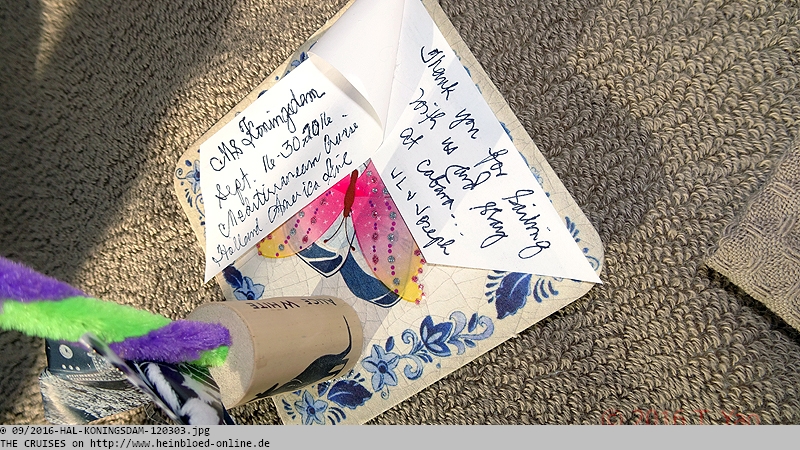 MS Koningsdam
Sept. 16-30-2016 -
Meditirranean Cruise
Holland America Line
Thank you for Sailing
with us and stay
at cabana...
JL & Joseph
ALICE WHITE
© 09/2016-HAL-KONINGSDAM-120303.jpg
THE CRUISES on http://www.heinbloed-online.de